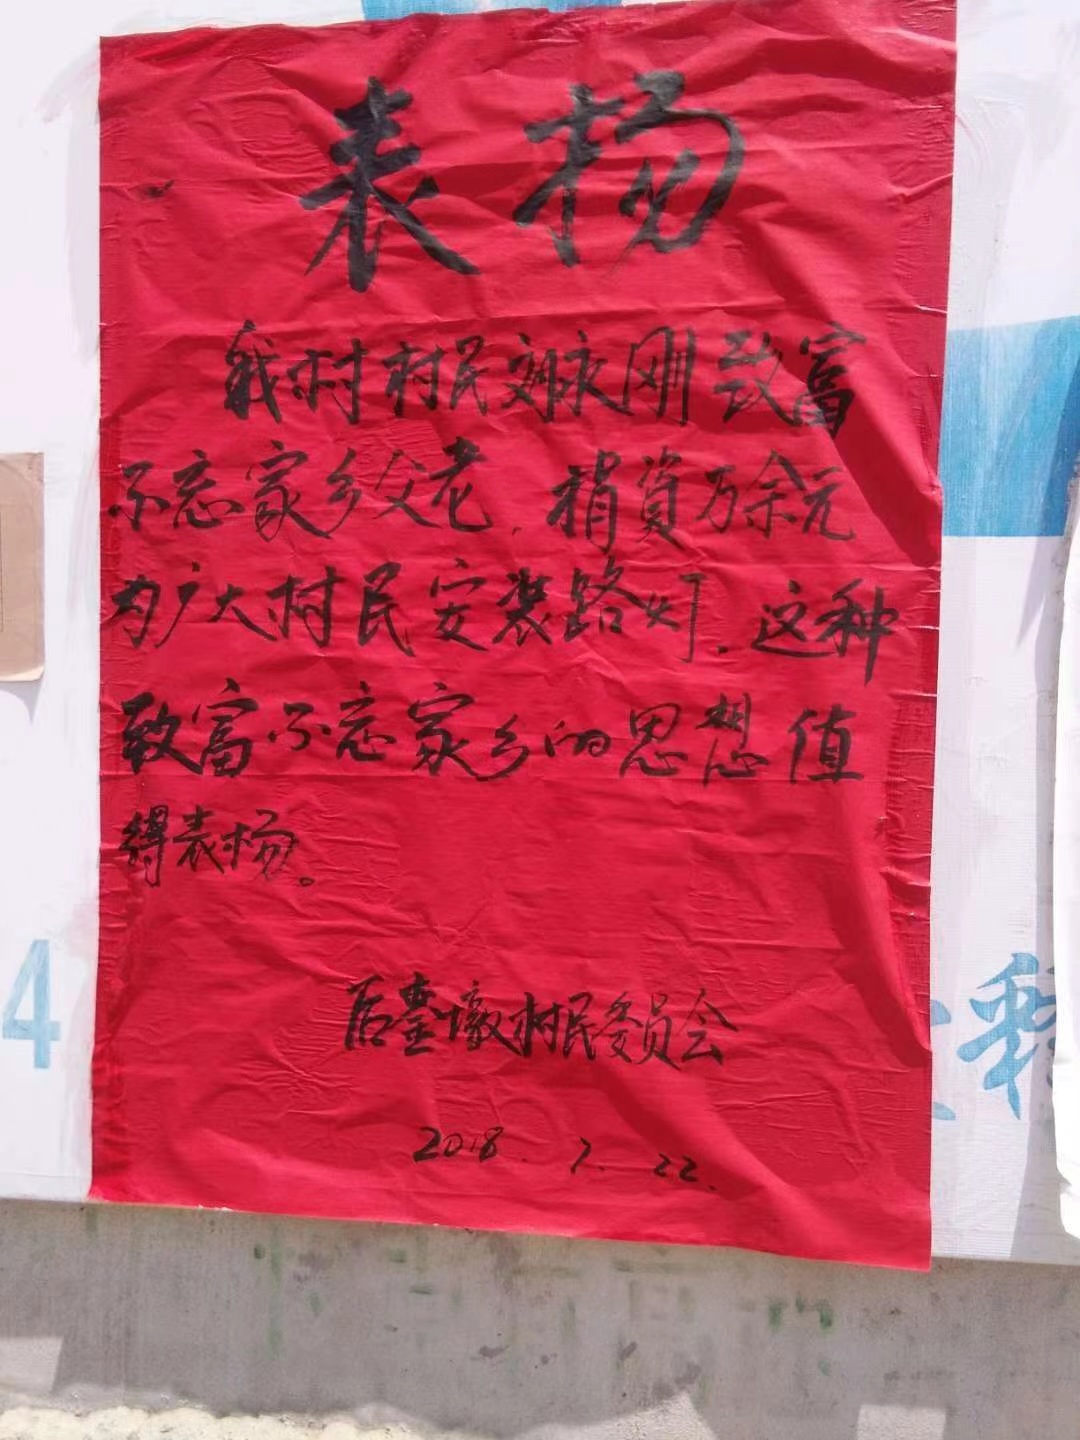 表扬
我村村民刘永刚致富
不忘家乡父老，捐資万余元
为广大村民安装路灯，这种
致富不忘家乡的思想值
得表扬。
后壷墩村民委员会
2018.7.22.
4